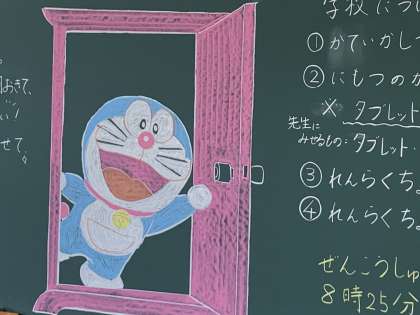 おきて、
い!
せて、
学校に
① かていか
② にもつの
※ タブレット
先生に
みせるもの:タブレット・
③ れんらくち
④ れんらくち
ぜんこうしゅ
8時25分